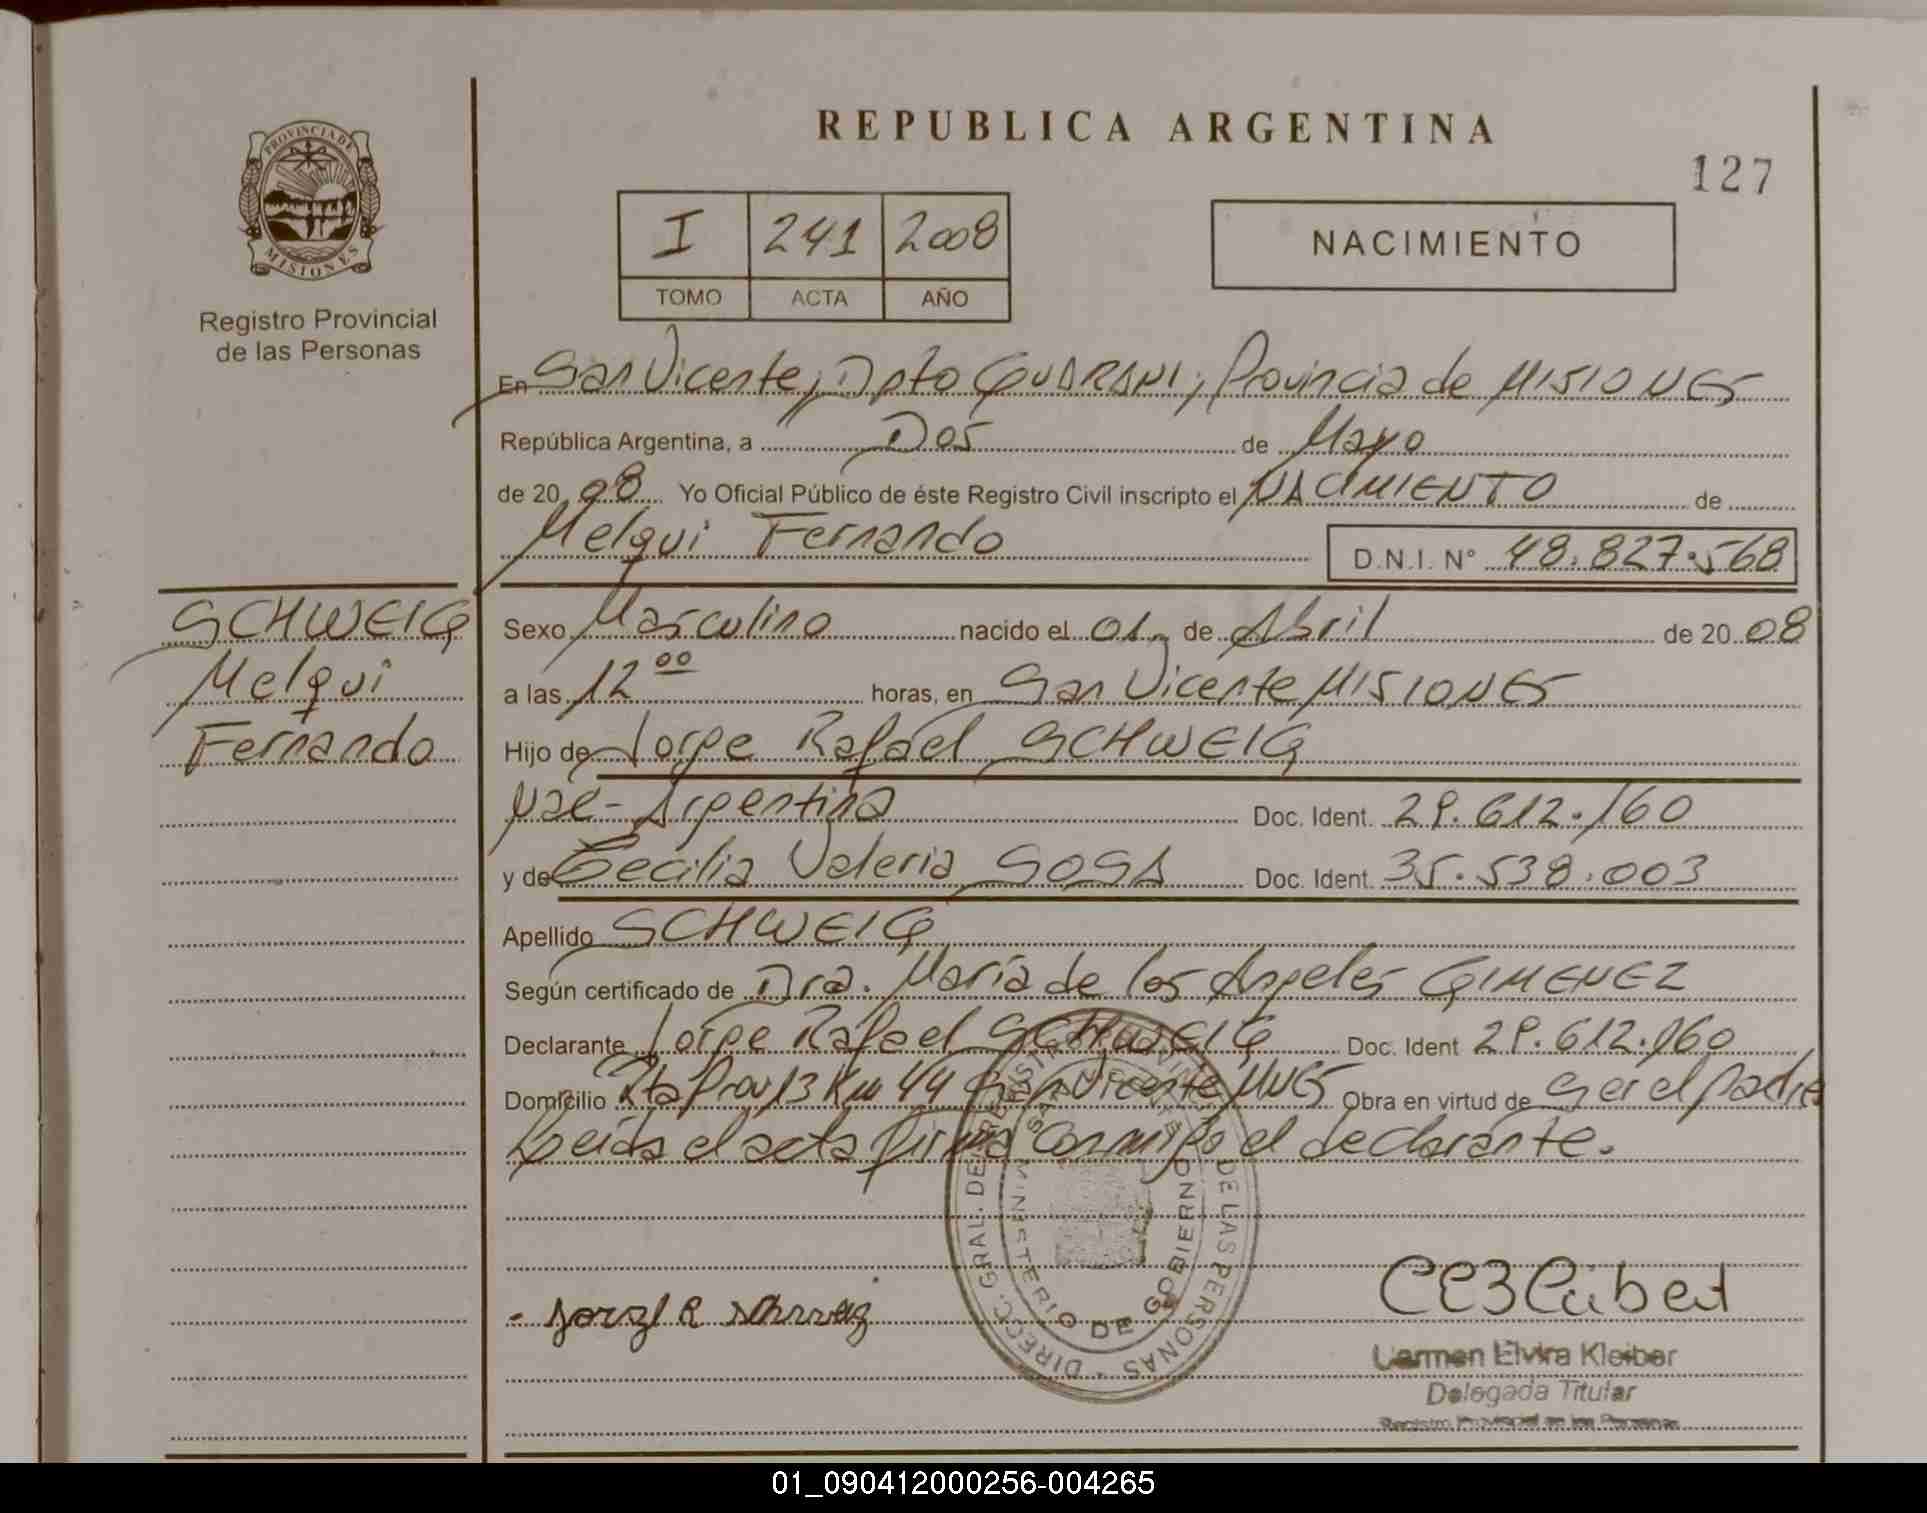 REPUBLICA ARGENTINA
127
PROVINCIA DE MISIONES
Registro Provincial
de las Personas
I 241 2008
TOMO ACTA AÑO
NACIMIENTO
En San Vicente, Dpto GUARANI, Provincia de MISIONES
República Argentina, a Dos de Mayo
de 20 08 Yo Oficial Público de éste Registro Civil inscripto el NACIMIENTO de
Melqui Fernando D.N.I. N° 48.827.568
SCHWEIG
Melqui
Fernando
Sexo Masculino nacido el 01 de Abril de 20 08
a las 12 00 horas, en San Vicente MISIONES
Hijo de Jorge Rafael SCHWEIG
Nac- Argentina Doc. Ident. 29.612.160
y de Cecilia Valeria SOSA Doc. Ident. 35.538.003
Apellido SCHWEIG
Según certificado de Dra. María de los Angeles GIMENEZ
Declarante Jorge Rafael SCHWEIG Doc. Ident 29.612.160
Domicilio Rta Prov 13 Km 44 San Vicente MNES Obra en virtud de Ser el padre
Leída el acta firma conmigo el declarante.
DIRECC. GRAL. DE REGISTRO PROVINCIAL DE LAS PERSONAS
MINISTERIO DE GOBIERNO
SAN VICENTE
Carmen Elvira Kleiber
Delegada Titular
Registro Provincial de las Personas
01_090412000256-004265